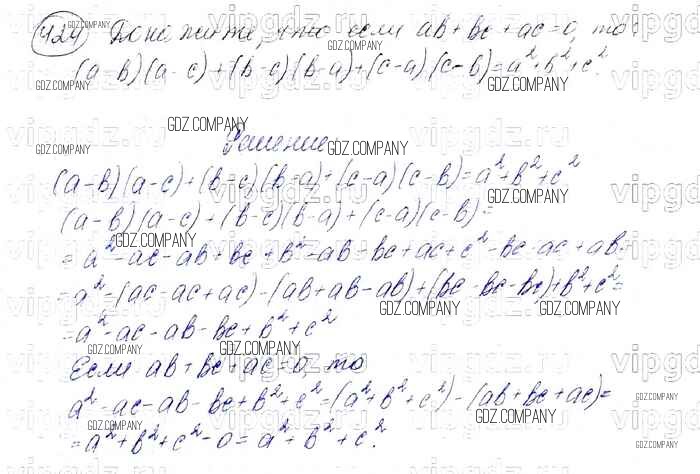 424 Докажите, что если ab + bc + ac = 0, то:
(a - b)(a - c) + (b - c)(b - a) + (c - a)(c - b) = a² + b² + c².
Решение:
(a - b)(a - c) + (b - c)(b - a) + (c - a)(c - b) = a² + b² + c²
(a - b)(a - c) + (b - c)(b - a) + (c - a)(c - b) =
= a² - ac - ab + bc + b² - ab - bc + ac + c² - bc - ac + ab =
= a² - (ac - ac + ac) - (ab + ab - ab) + (bc - bc - bc) + b² + c² =
= a² - ac - ab - bc + b² + c²
Если ab + bc + ac = 0, то
a² - ac - ab - bc + b² + c² = (a² + b² + c²) - (ab + bc + ac) =
= a² + b² + c² - 0 = a² + b² + c².
GDZ.COMPANY
vipgdz.ru